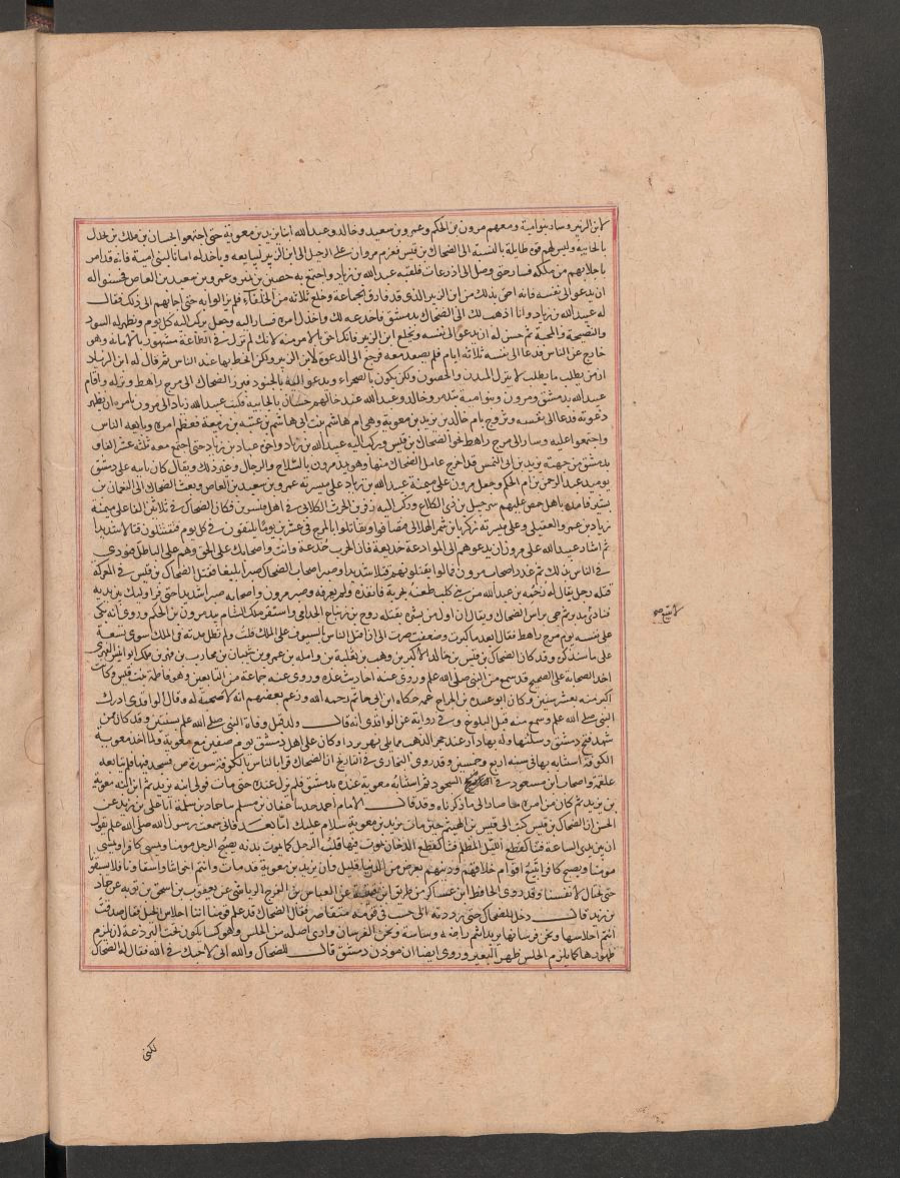 لابن الزبير وسار بنو امية ومعهم مرون بن الحكم وعمرو بن سعيد وخالد وعبد الله ابنا يزيد بن معوية حتى اجتمعوا بحسان بن ملك بن بحدل
بالجابية وليس لهم قوة طايلة بالنسبة الى الضحاك بن قيس فعزم مروان على الرحيل الى ابن الزبير ليبايعه وياخد له امانا لبني امية فانه قد امر
باجلايهم من ملكه فسار حتى وصل الى اذرعات فلقيه عبيد الله بن زياد واجتمع به حصين بن نمير وعمرو بن سعيد بن العاص فحسنوا له
ان يدعو الى نفسه فانه احق بذلك من ابن الزبير الذي قد فارق الجماعة وخلع ثلاثه من الخلفاء فلم يزالوا به حتى اجابهم الى ذلك فقال
له عبيد الله بن زياد وانا اذهب لك الى الضحاك بدمشق فاخدعه لك واخذل امره فسار اليه وجعل يركب اليه كل يوم ويظهر له الود
والنصيحة والمحبة ثم حسن له ان يدعو الى نفسه ويخلع ابن الزبير فانك احق بالامر منه لانك لم تزل في الطاعة مشهور بالامانه وهو
خارج عن الناس فدعا الى نفسه ثلاثه ايام فلم يصعد معه فرجع الى الدعوة لابن الزبير ولكن انحط بها عند الناس ثم قال له ابن زياد
ان من يطلب ما يطلب لا ينزل المدن والحصون ولكن يكون بالصحراء ويدعو اليه بالجنود فبرز الضحاك الى مرج راهط ونزله واقام
عبيد الله بدمشق ومرون وبنو امية بتدمر وخالد وعبد الله عند خالهم حسان بالجابية فكتب عبيد الله زياد الى مرون يامره ان يظهر
دعوته فدعا الى نفسه وتزوج بام خالد بن يزيد بن معوية وهي ام هاشم بنت ابي هاشم بن عتبه بن ربيعة فعظم امره وبايعه الناس
واجتمعوا عليه وسار الى مرج راهط نحو الضحاك بن قيس وركب اليه عبيد الله بن زياد واخوه عباد بن زياد حتى اجتمع معه ثلثة عشر الفا و
بدمشق من جهته يزيد بن ابي النمس قد اخرج عامل الضحاك منها وهو يمد مرون بالسلاح والرجال وغير ذلك ويقال كان نايبه على دمشق
يوميذ عبد الرحمن بن ام الحكم وجعل مرون على ميمنة عبيد الله بن زياد على ميسرته عمرو بن سعيد بن العاص وبعث الضحاك الى النعمان بن
بشير فامده باهل حمص عليهم شرحبيل بن ذي الكلاع وركب اليه زفر بن الحرث الكلابي في اهل قنسرين فكان الضحاك في ثلاثين الفا على ميمنته
زياد بن عمرو العقيلي وعلى ميسرته زكريا بن شمر الهلالي فتصافوا وتقاتلوا بالمرج في عشرين يوما يلتقون في كل يوم فيقتتلون قتالا شديدا
ثم اشار عبيد الله على مرون ان يدعوهم الى الموادعة خديعة فان الحرب خدعة وانت واصحابك على الحق وهم على الباطل فنودي
في الناس بذلك ثم غدر اصحاب مرون فمالوا يقتلونهم قتلا شديدا وصبر اصحاب الضحاك صبرا بليغا فقتل الضحاك بن قيس في المعركة
قتله رجل يقال له زحمه بن عبد الله من بني كلب طعنه بحربة فانفذه ولم يعرفه وصبر مرون واصحابه صبرا شديدا حتى فر اوليك بين يديه
فنادى ثم جي براس الضحاك ويقال ان اول من بشره بقتله روح بن زنباع الجذامي واستقر ملك الشام بيد مرون بن الحكم وروي انه بكى
على نفسه يوم مرج راهط فقال ابعد ما كبرت وضعفت صرت الى ان اقتل الناس بالسيوف على الملك قلت ولم تطل مدته في الملك سوى تسعة
على ما سنذكره وقد كان الضحاك بن قيس بن خالد الاكبر بن وهب بن ثعلبة بن وايله بن عمرو بن شيبان بن محارب بن فهر بن ملك ابو انيس الفهري
احد الصحابة على الصحيح قد سمع من النبي صلى الله علم وروى عنه احاديث عدة وروى عنه جماعة من التابعين وهو فاطمة بنت قيس وكانت
اكبر منه بعشر سنين وكان ابو عبيدة بن الجراح عمه حكاه ابن ابي حاتم رحمه الله وزعم بعضهم انه لا صحبة له وقال الواقدي ادرك
النبي صلى الله علم وسمع منه قبل البلوغ وفي رواية عن الواقدي انه قال ولد قبل وفاة النبي صلى الله علم بسنتين وقد كان ممن
شهد فتح دمشق وسكنها وله بها دار عند حجر الذهب مما يلي نهر بردا وكان على اهل دمشق يوم صفين مع معوية ولما اخذ معوية
الكوفة استنابه بها في سنه اربع وخمسين وقد روى البخاري في التاريخ ان الضحاك قرا بالناس بالكوفة سورة ص فسجد فيها فلم يتابعه
علقمة واصحاب ابن مسعود في السجود ثم استنابه معوية عنده بدمشق فلم يزل عنده حتى مات فولي ابنه يزيد ثم ابن ابنه معوية
بن يزيد ثم كان من امره ما صار الى ما ذكرناه وقد قال الامام احمد حدثنا عفان بن مسلم ثنا حماد بن سلمة انا علي بن زيد عن
الحسن ان الضحاك بن قيس كتب الى قيس بن الهيثم حين مات يزيد بن معوية سلام عليك اما بعد فاني سمعت رسول الله صلى الله علم يقول
ان بين يدي الساعة فتنا كقطع الليل المظلم فتنا كقطع الدخان يموت فيها قلب الرجل كما يموت بدنه يصبح الرجل مومنا ويمسي كافرا ويمسي
مومنا ويصبح كافرا يبيع اقوام خلاقهم ودينهم بعرض من الدنيا قليل وان يزيد بن معوية قد مات وانتم اخواننا واشقاونا فلا تسبقونا
حتى نختار لانفسنا وقد روى الحافظ ابن عساكر من طريق ابن قتيبة عن العباس بن الفرج الرياشي عن يعقوب بن اسحق بن توبه عن حماد
بن زيد قال دخل الضحاك
انتم احلاسها ونحن فرسانها
ظهورها كما يلزم الحلس ظهر البعير وروى ايضا ان موذن دمشق قال للضحاك والله اني لاحبك في الله فقال له الضحاك
لكني